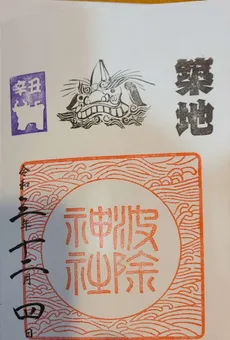 築地
辛丑
波除
神社
令和三年十二月四日